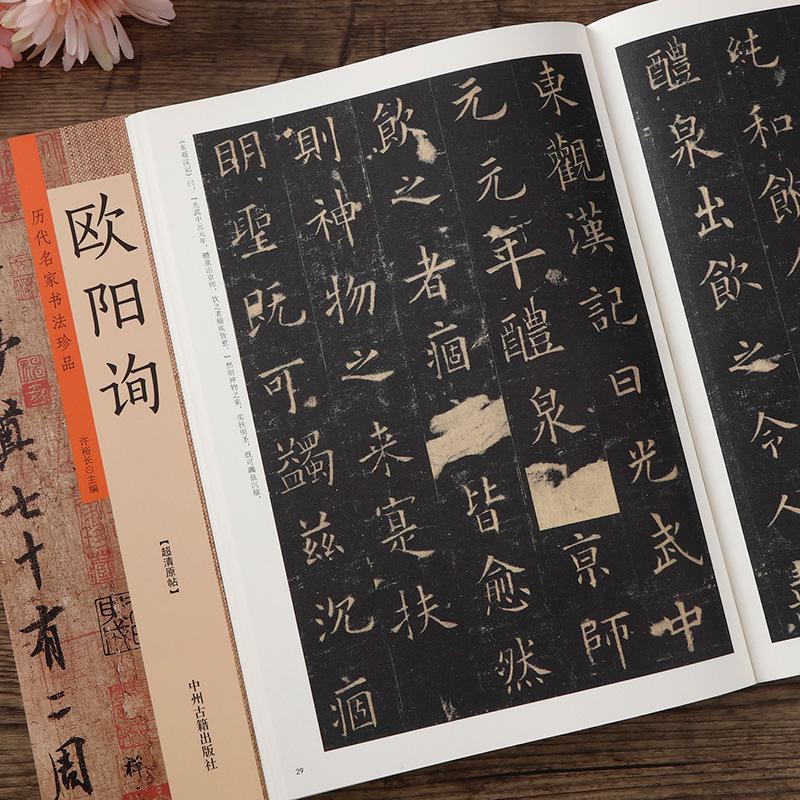 欧阳询
历代名家书法珍品
许裕长⊙主编
【超清原帖】
中州古籍出版社
七十有二周
純和飲
醴泉出飲之令人
東觀漢記曰光武中
元元年醴泉京師
飲之者痼皆愈然
則神物之来寔扶
明聖既可蠲兹沉痼
《东观汉记》曰：「光武中元元年，醴泉出京师，饮之者痼疾皆愈。」然则神物之来，实扶明圣，既可蠲兹沉痼，
29